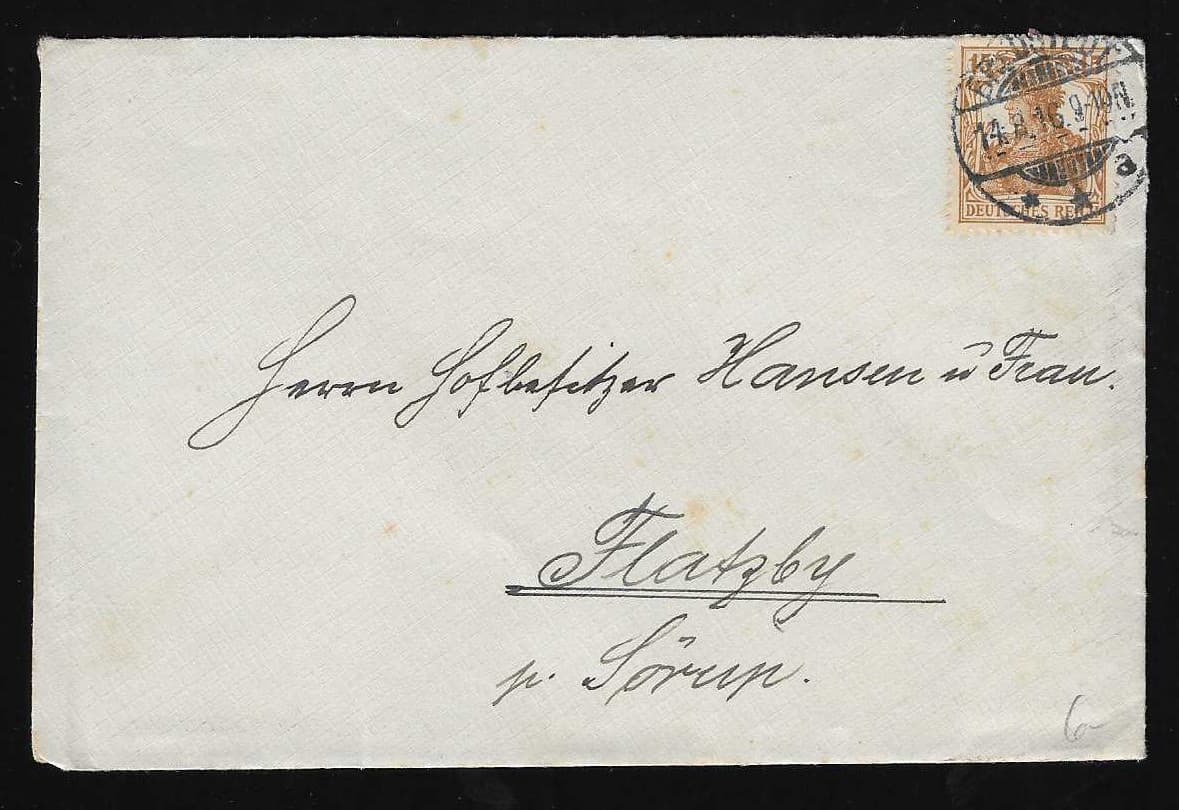 14.8.16.9-10N.
a
DEUTSCHES REICH
Herrn Hofbesitzer Hansen u Frau.
Flatzby
p. Sörup.
6-